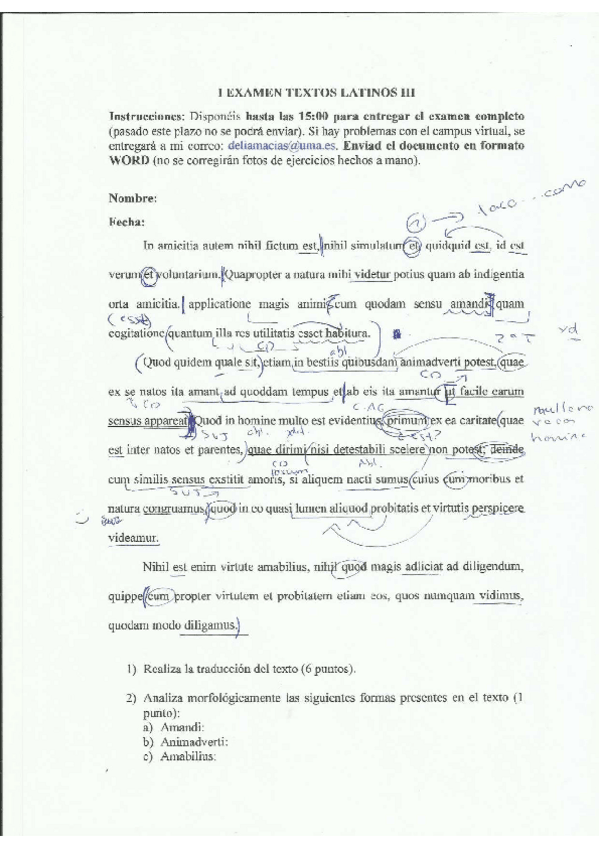 I EXAMEN TEXTOS LATINOS III
Instrucciones: Disponéis hasta las 15:00 para entregar el examen completo
(pasado este plazo no se podrá enviar). Si hay problemas con el campus virtual, se
entregará a mi correo: deliamacias@uma.es. Enviad el documento en formato
WORD (no se corregirán fotos de ejercicios hechos a mano).
Nombre:
Fecha:
como
In amicitia autem nihil fictum est, nihil simulatum et quidquid est, id est
verum et voluntarium. Quapropter a natura mihi videtur potius quam ab indigentia
orta amicitia, applicatione magis animi cum quodam sensu amandi quam
(esse)
cogitatione quantum illa res utilitatis esset habitura.
CD
abl.
Quod quidem quale sit, etiam in bestiis quibusdam animadverti potest, quae
CD
ex se natos ita amant ad quoddam tempus et ab eis ita amantur ut facile earum
CD
sensus appareat. Quod in homine multo est evidentius, primum ex ea caritate quae
SUJ
abl.
est inter natos et parentes, quae dirimi nisi detestabili scelere non potest; deinde
CD
Abl.
cum similis sensus exstitit amoris, si aliquem nacti sumus cuius cum moribus et
SUJ
natura congruamus, quod in eo quasi lumen aliquod probitatis et virtutis perspicere
videamur.
Nihil est enim virtute amabilius, nihil quod magis adliciat ad diligendum,
quippe cum propter virtutem et probitatem etiam eos, quos numquam vidimus,
quodam modo diligamus.
1) Realiza la traducción del texto (6 puntos).
2) Analiza morfológicamente las siguientes formas presentes en el texto (1
punto):
a) Amandi:
b) Animadverti:
c) Amabilius: